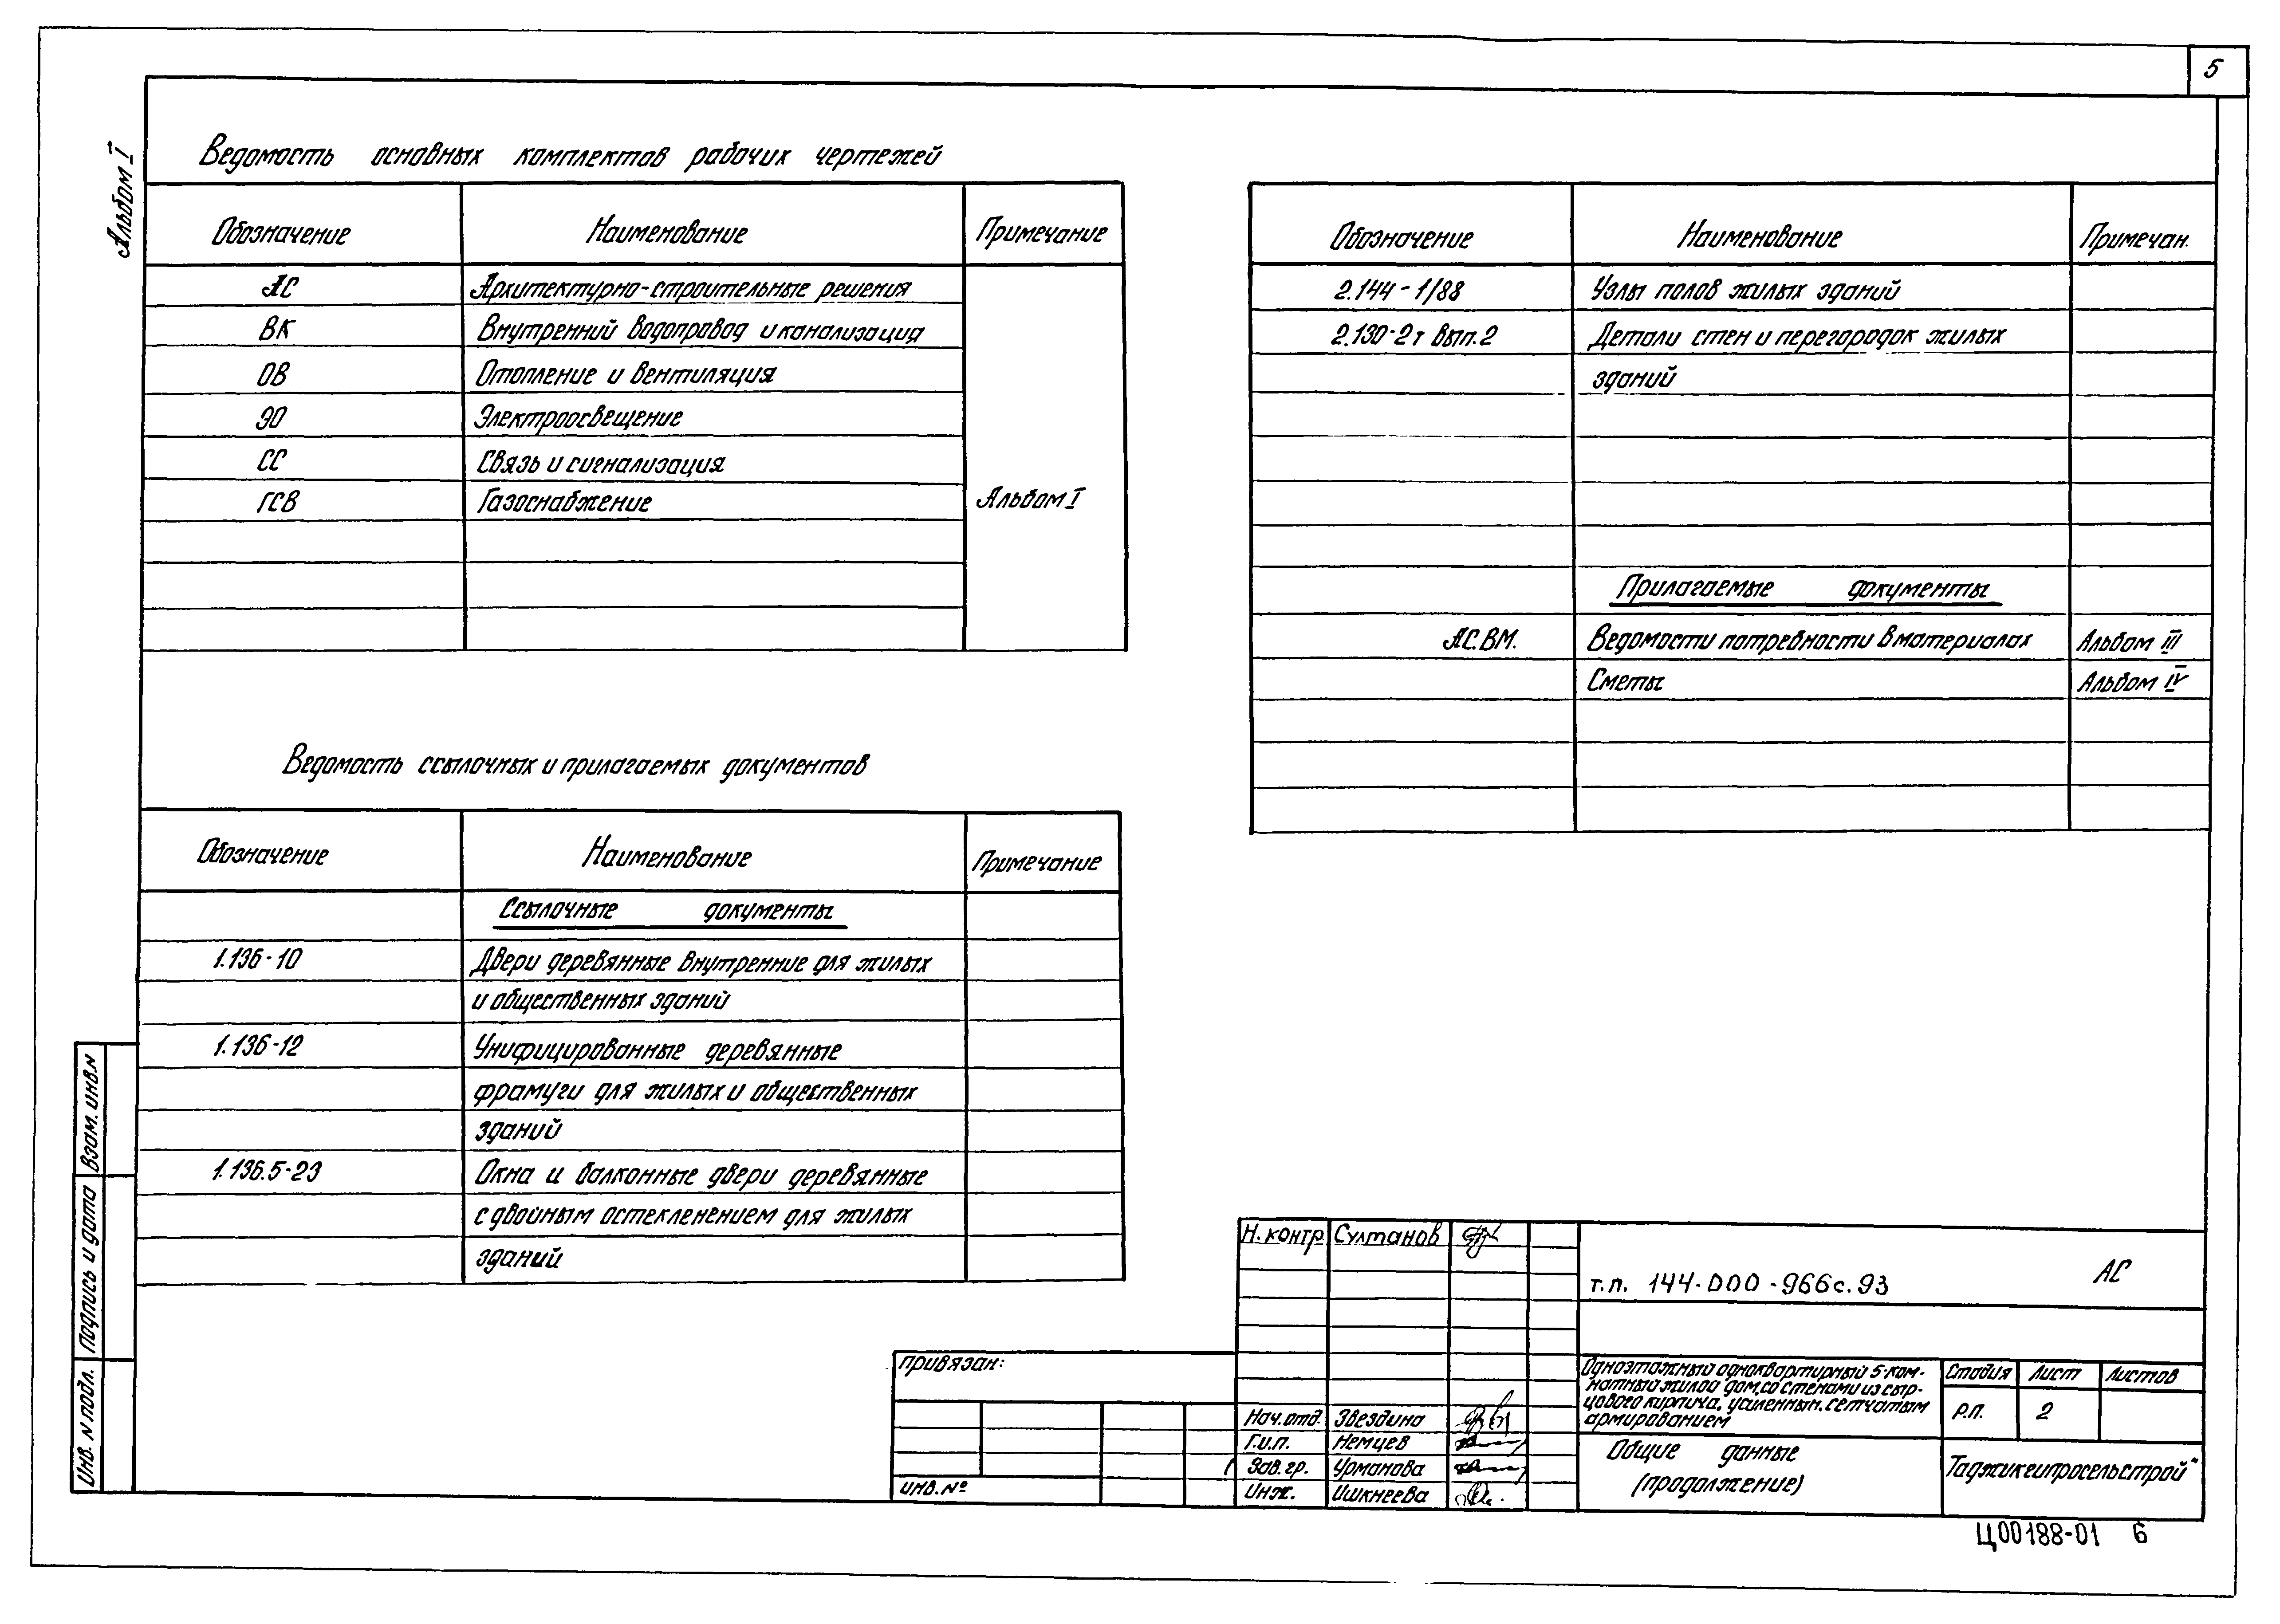 5
Альбом I
Ведомость основных комплектов рабочих чертежей
Обозначение Наименование Примечание
АС Архитектурно-строительные решения
ВК Внутренний водопровод и канализация
ОВ Отопление и вентиляция
ЭО Электроосвещение
СС Связь и сигнализация
ГСВ Газоснабжение Альбом I
Ведомость ссылочных и прилагаемых документов
Обозначение Наименование Примечание
Ссылочные документы
1.136-10 Двери деревянные внутренние для жилых
и общественных зданий
1.136-12 Унифицированные деревянные
фрамуги для жилых и общественных
зданий
1.136.5-23 Окна и балконные двери деревянные
с двойным остекленением для жилых
зданий
Обозначение Наименование Примечан.
2.144-1/88 Узлы полов жилых зданий
2.130-2т вып.2 Детали стен и перегородок жилых
зданий
Прилагаемые документы
АС.ВМ. Ведомости потребности в материалах Альбом III
Сметы Альбом IV
Взам. инв.N
Подпись и дата
Инв. N подл.
Привязан:
инв.№
Н.контр Султанов
Нач.отд. Звездина
Г.и.п. Немцев
Зав.гр. Урманова
Инж. Ишкнеева
т.п. 144-000-966с.93 АС
Одноэтажный одноквартирный 5-ком-
натный жилой дом, со стенами из сыр-
цового кирпича, усиленным. сетчатым
армированием
Стадия Лист Листов
Р.П. 2
Общие данные
(продолжение)
Таджикгипросельстрой"
Ц00188-01 6